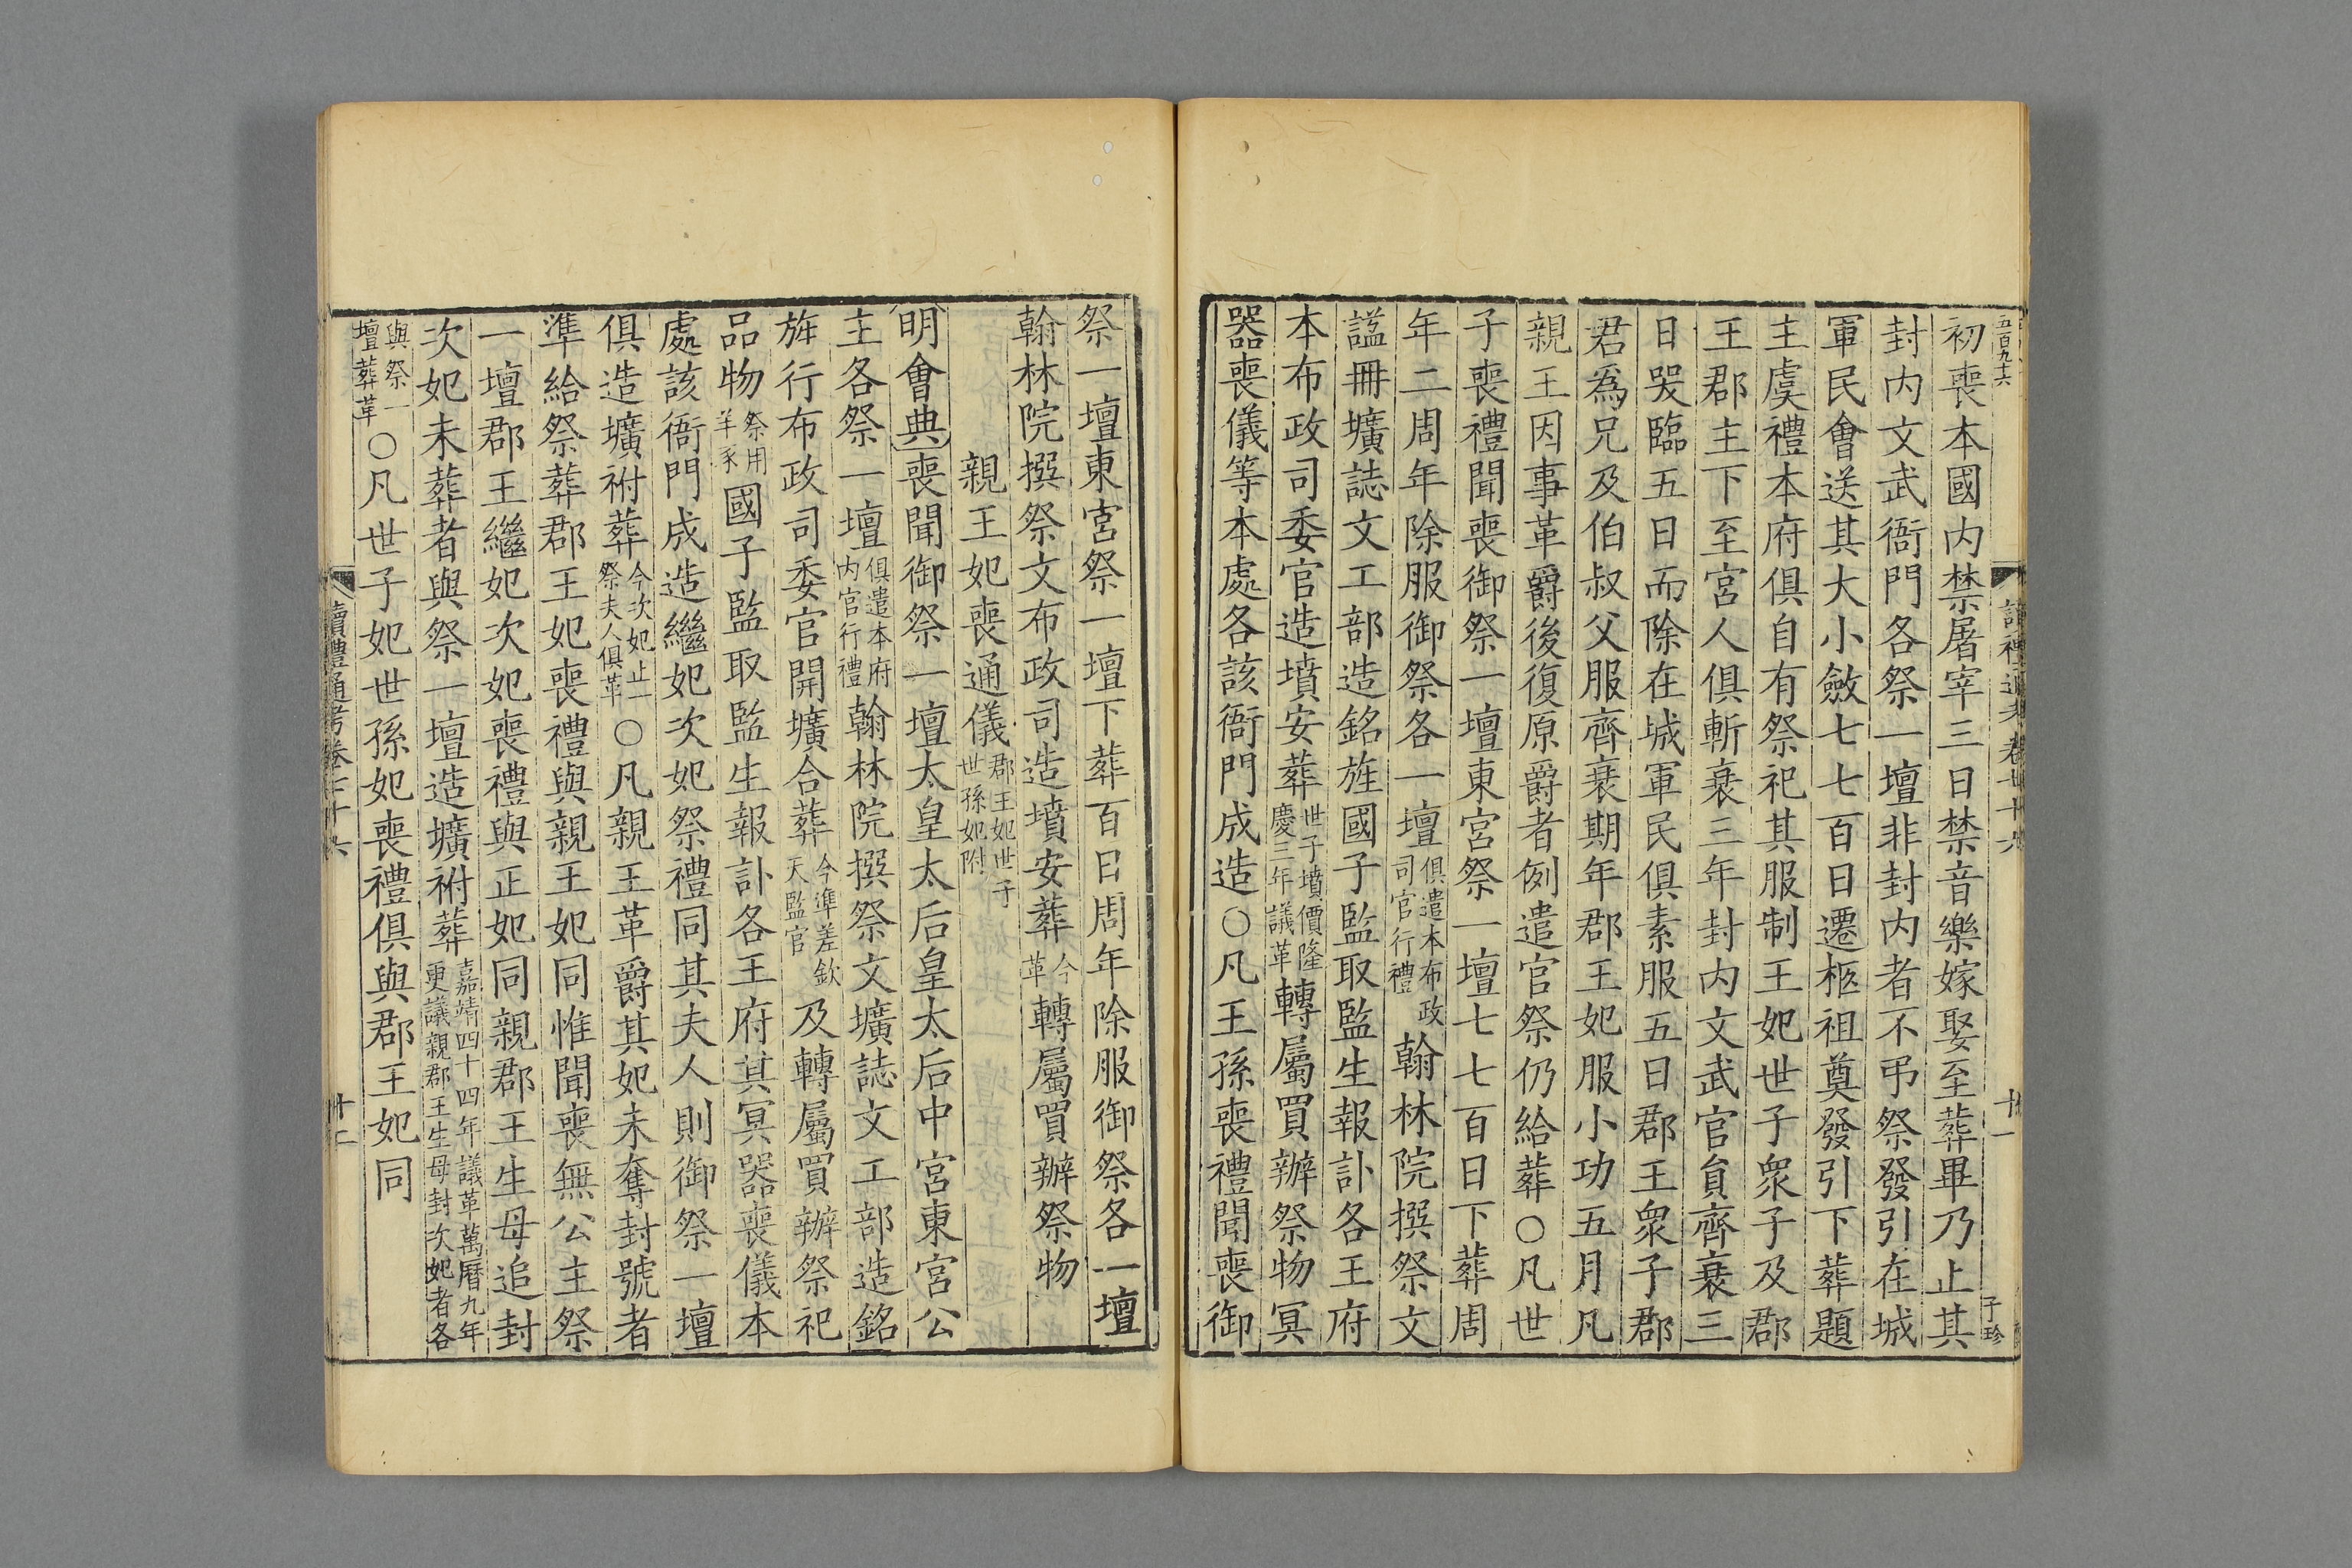 五百九十六
讀禮通考卷七十六
十一
子珍
初喪本國内禁屠宰三日禁音樂嫁娶至葬畢乃止其
封内文武衙門各祭一壇非封内者不弔祭發引在城
軍民會送其大小斂七七百日遷柩祖奠發引下葬題
主虞禮本府俱自有祭祀其服制王妃世子衆子及郡
王郡主下至宮人俱斬衰三年封内文武官員齊衰三
日哭臨五日而除在城軍民俱素服五日郡王衆子郡
君爲兄及伯叔父服齊衰期年郡王妃服小功五月凡
親王因事革爵後復原爵者例遣官祭仍給葬○凡世
子喪禮聞喪御祭一壇東宮祭一壇七七百日下葬周
年二周年除服御祭各一壇俱遣本布政司官行禮翰林院撰祭文
諡冊壙誌文工部造銘旌國子監取監生報訃各王府
本布政司委官造墳安葬世子墳價隆慶三年議革轉屬買辦祭物冥
器喪儀等本處各該衙門成造○凡王孫喪禮聞喪御
祭一壇東宮祭一壇下葬百日周年除服御祭各一壇
翰林院撰祭文布政司造墳安葬今革轉屬買辦祭物
親王妃喪通儀郡王妃世子世孫妃附
明會典喪聞御祭一壇太皇太后皇太后中宮東宮公
主各祭一壇俱遣本府内官行禮翰林院撰祭文壙誌文工部造銘
旌行布政司委官開壙合葬今準差欽天監官及轉屬買辦祭祀
品物祭用羊豕國子監取監生報訃各王府其冥器喪儀本
處該衙門成造繼妃次妃祭禮同其夫人則御祭一壇
俱造壙祔葬今次妃止一祭夫人俱革○凡親王革爵其妃未奪封號者
準給祭葬郡王妃喪禮與親王妃同惟聞喪無公主祭
一壇郡王繼妃次妃喪禮與正妃同親郡王生母追封
次妃未葬者與祭一壇造壙祔葬嘉靖四十四年議革萬曆九年更議親郡王生母封次妃者各
與祭一壇葬革○凡世子妃世孫妃喪禮俱與郡王妃同
讀禮通考卷七十六
十二